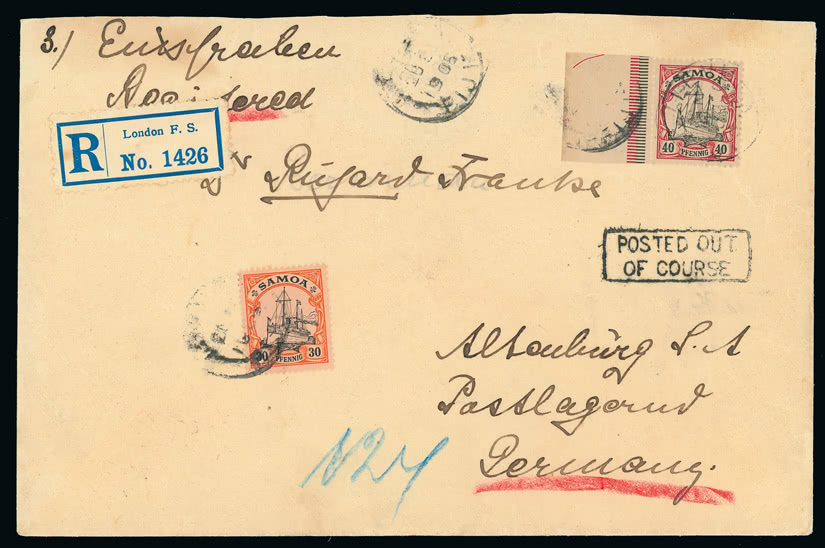 3.) Einschreiben
Registered
R
London F. S.
No. 1426
Dr Rügard Franke
SAMOA
40 PFENNIG 40
POSTED OUT
OF COURSE
SAMOA
30 PFENNIG 30
Altenburg S. A
Postlagernd
Germany.
FIJI